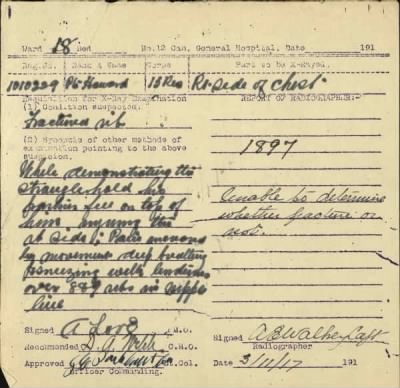 Ward 18 Bed No.12 Can. General Hospital. Date 191
Reg.No. Rank & Name Corps Part to be X-Rayed.
1010229 Pte Howard 15 Res Rt. side of chest
Requisition for X-Ray Examination
(1) Condition suspected.
Fractured rib
(2) Synopsis of other methods of
examination pointing to the above
suspicion.
While demonstrating the
stranglehold his
partner fell on top of
him injuring the
rt side. Pain
by movement deep breathing
sneezing with tenderness
over 8&9 ribs in
line
REPORT OF RADIOGRAPHER:-
1897
Unable to determine
whether fracture or
not.
Signed M.O.
Recommended C.M.O.
Approved Lt.Col.
Officer Commanding.
Signed A E Walker Capt
Radiographer
Date 3/11/17 191